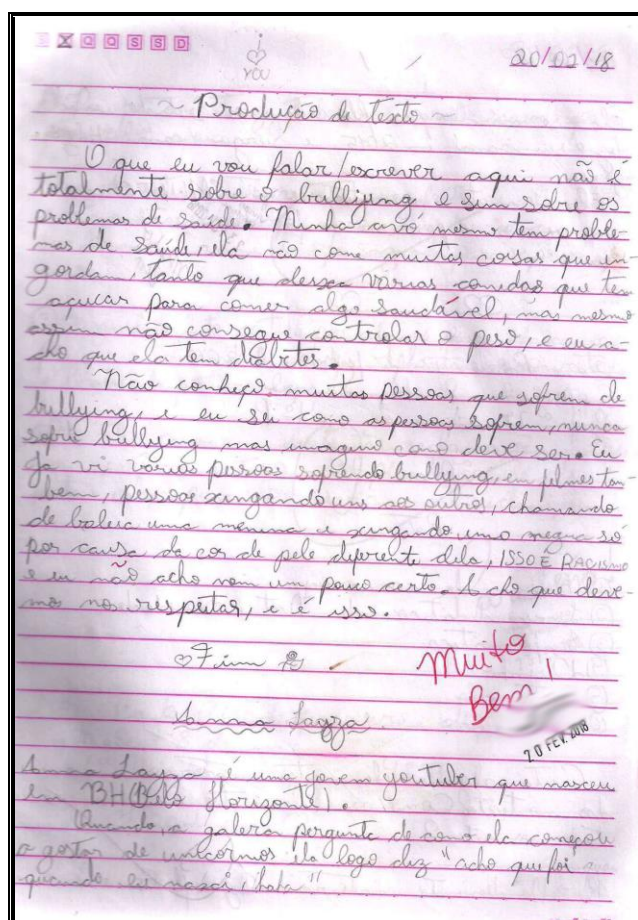 D X Q Q S S D
i
YOU
20/02/18
~ Produção de texto ~
O que eu vou falar/escrever aqui não é
totalmente sobre o bullijyng e sim sobre os
problemas de saúde. Minha avó mesmo tem proble-
mas de saúde, ela não come muitas coisas que en-
gordam, tanto que deixa várias comidas que tem
açucar para comer algo saudável, mas mesmo
assim não consegue controlar o peso, e eu a-
cho que ela tem diabites.
Não conheço muitas pessoas que sofrem de
bullying, e eu sei como as pessoas sofrem, nunca
sofri bullying mas imagino como deve ser. Eu
Ja vi varias pessoas sofrendo bullyyng, em filmes tam-
bem, pessoas xingando uns aos outros, chamando
de baleia uma menina e xingando uma negra só
por causa da cor de pele diferente dela, ISSO É RACISMO
e eu não acho nem um pouco certo. Acho que deve-
mos nos respeitar, e é isso.
Fim
Muito
Bem!
20 FEV. 2018
é uma jovem youtuber que nasceu
em BH(Belo Horizonte).
Quando, a galera pergunta de como ela começou
a gostar de unicornios ela logo diz "acho que foi
quando eu nasci,